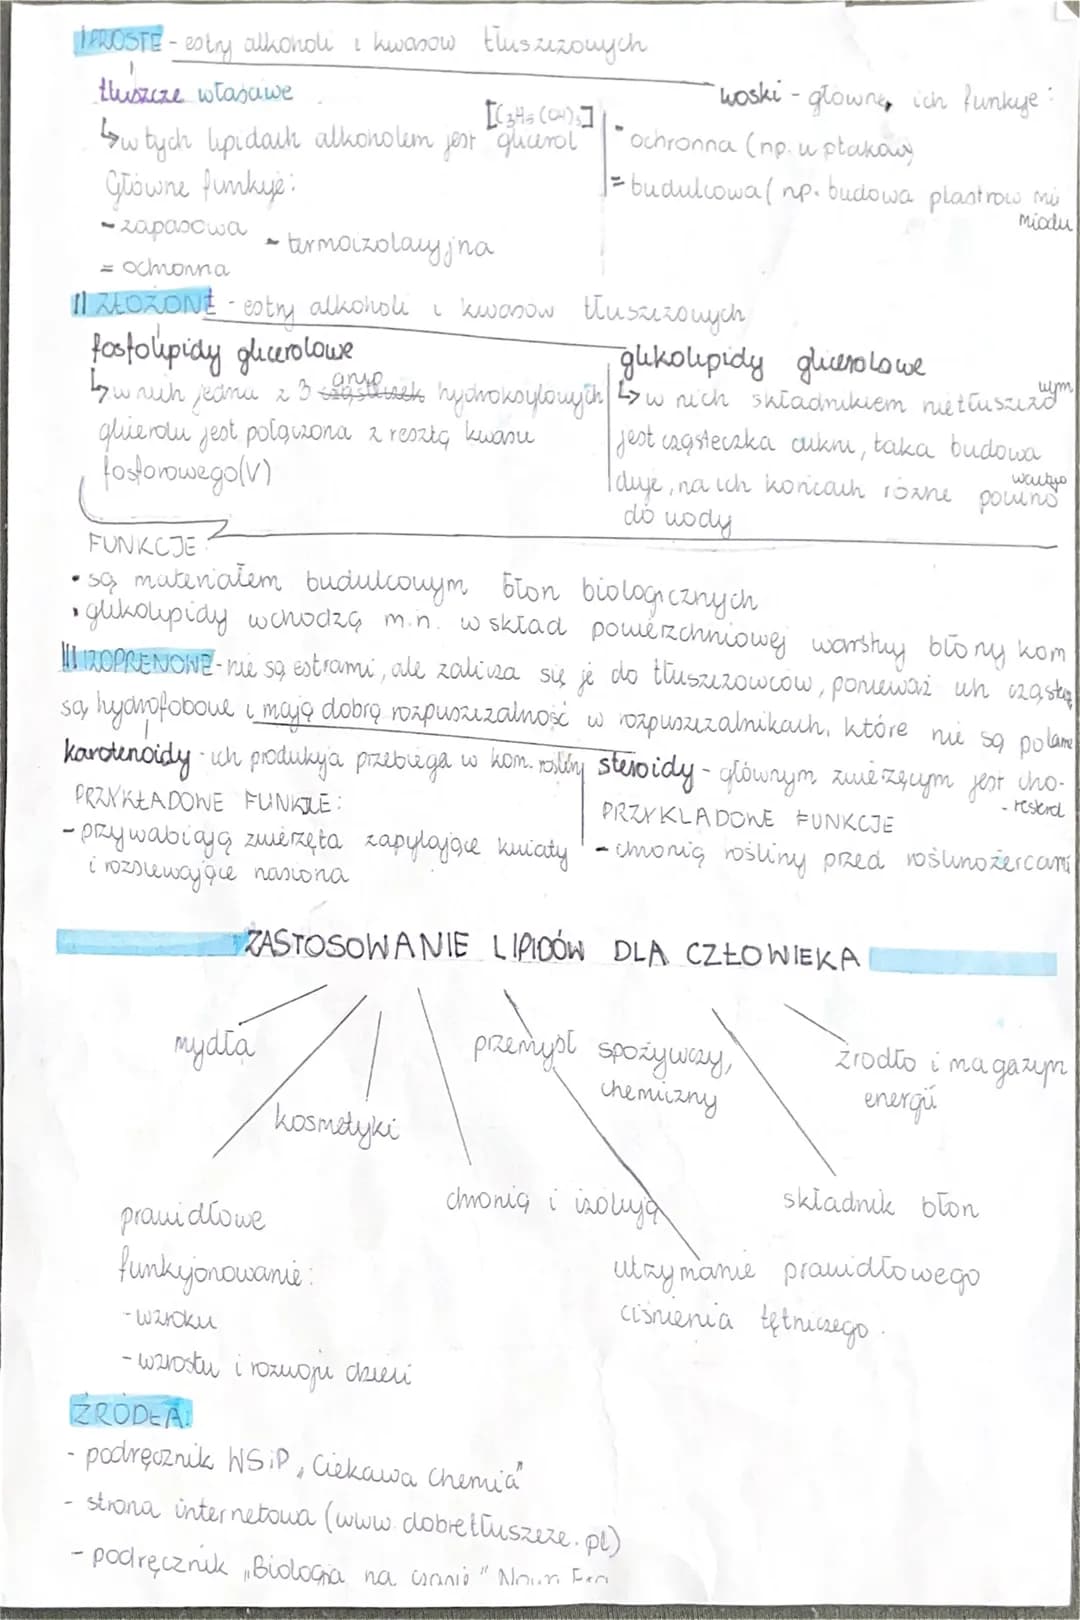 I PROSTE - estry alkoholi i kwasów tłuszczowych
tłuszcze właściwe
[C3H5(OH)3]
↳w tych lipidach alkoholem jest glicerol
Główne funkcje:
- zapasowa
- termoizolacyjna
= ochronna
woski - główne, ich funkcje:
- ochronna (np. u ptaków)
= budulcowa (np. budowa plastrów mi
miodu
II ZŁOŻONE - estry alkoholi i kwasów tłuszczowych
fosfolipidy glicerolowe
↳w nich jedna z 3 grup hydroksylowych
glicerolu jest połączona z resztą kwasu
fosforowego(V)
glikolipidy glicerolowe
↳w nich składnikiem nietłuszczowym
jest cząsteczka cukru, taka budowa
duje, na ich końcach różne powino
wactwo
do wody
FUNKCJE
• są materiałem budulcowym błon biologicznych
• glikolipidy wchodzą m.in. w skład powierzchniowej warstwy błony kom
III IZOPRENOWE - nie są estrami, ale zalicza się je do tłuszczowców, ponieważ ich cząstecz
są hydrofobowe i mają dobrą rozpuszczalność w rozpuszczalnikach, które nie są polarne
karotenoidy - ich produkcja przebiega w kom. rośliny
PRZYKŁADOWE FUNKCJE:
- przywabiają zwierzęta zapylające kwiaty
i rozsiewające nasiona
steroidy - głównym zwierzęcym jest cho-
- resterol
PRZYKŁADOWE FUNKCJE
- chronią rośliny przed roślinożercami
ZASTOSOWANIE LIPIDÓW DLA CZŁOWIEKA
mydła
kosmetyki
przemysł spożywczy,
chemiczny
źródło i magazyn
energii
prawidłowe
funkcjonowanie:
- wzroku
- wzrostu i rozwoju dzieci
chronią i izolują
składnik błon
utrzymanie prawidłowego
ciśnienia tętniczego.
ŹRÓDŁA:
- podręcznik WSiP „Ciekawa chemia"
- strona internetowa (www.dobretłuszcze.pl)
- podręcznik „Biologia na czasie" Nowa Era